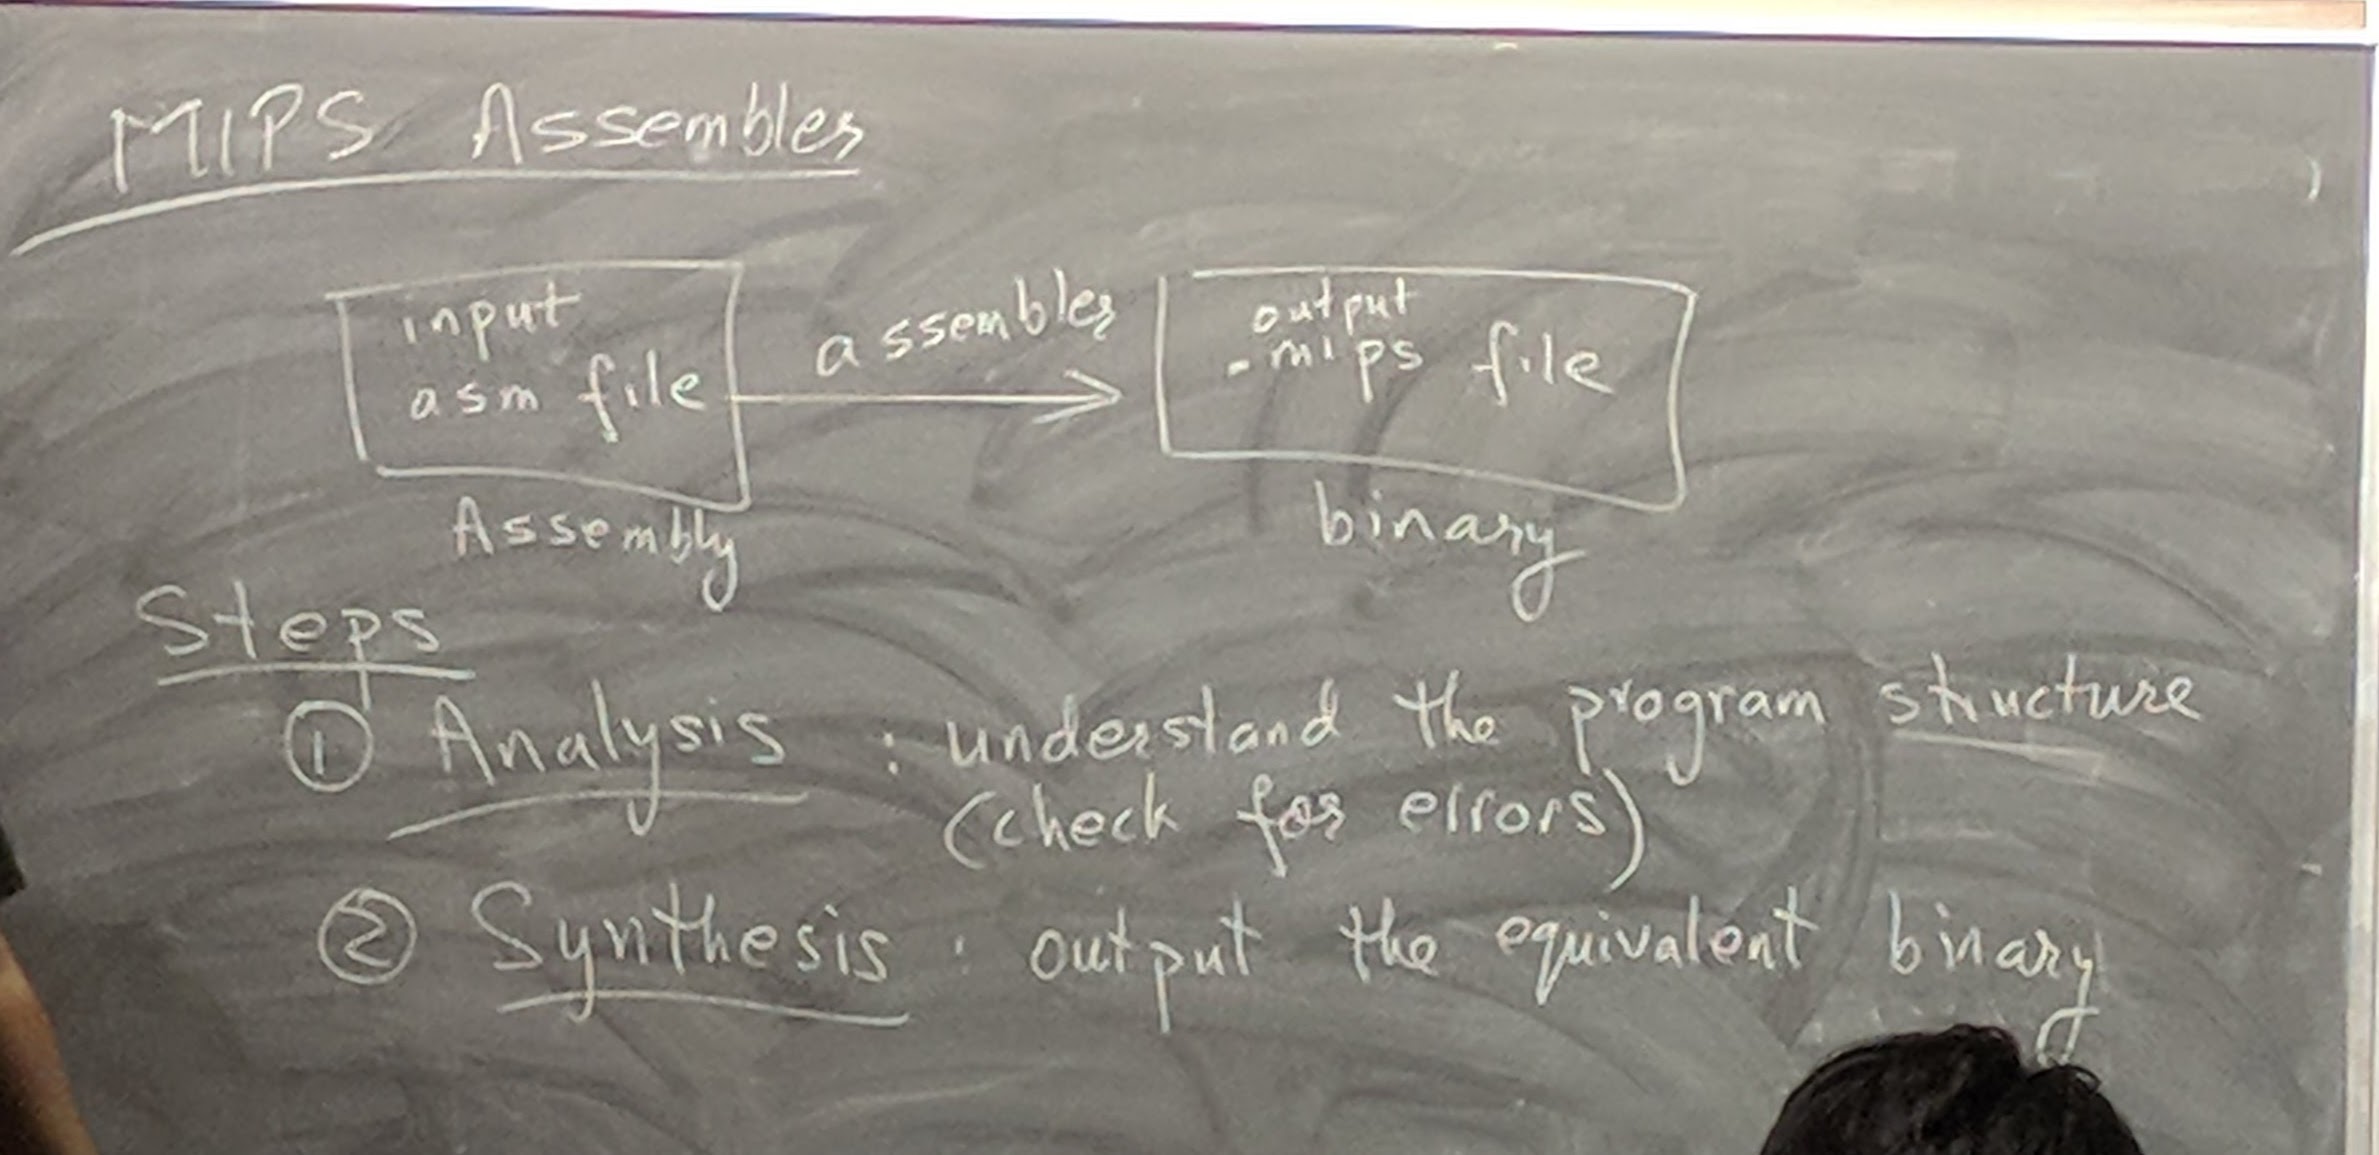 MIPS Assembler
input
asm file
assembler
output
.mips file
Assembly
binary
Steps
① Analysis : understand the program structure
(check for errors)
② Synthesis : output the equivalent binary